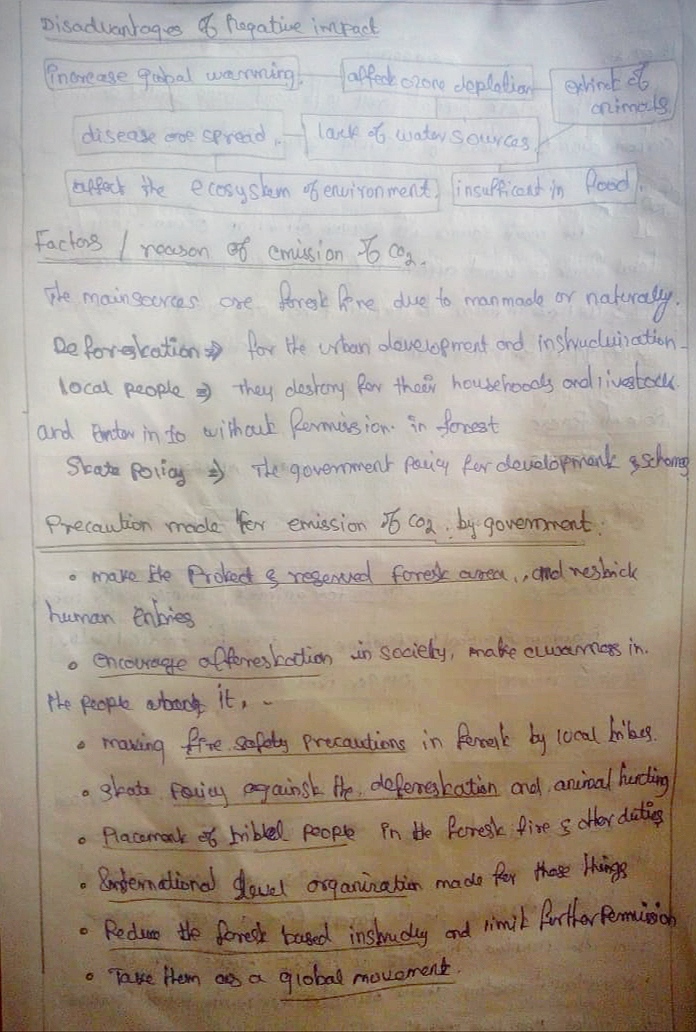 Disadvantages of Negative impact
increase gobal warmming. affect ozone depletion extinct of
animals
disease are spread. lack of water sources
affect the ecosystem of environment. insufficant in food.
Factors / reason of emission of CO2.
The main sources are forest fire due to manmade or naturally.
Deforestation ⇒ for the urban development and
local people ⇒ they destory for their househoods and livestock.
and Enter in to without permission in forest
State policy ⇒ The government policy for development &
Precaution made for emission of CO2. by government.
• make the Protect & reserved forest area., and restrict
human entries
• encourage afforestation in society, make awarness in.
the people about it, -
• making fire safety precautions in forest by local tribes.
• state policy against the deforestation and animal hunting
• Placement of tribel people in the forest fire & other duties
• International level organization made for those things
• Reduce the forest based and limit further Permission
• Take them as a global movement.